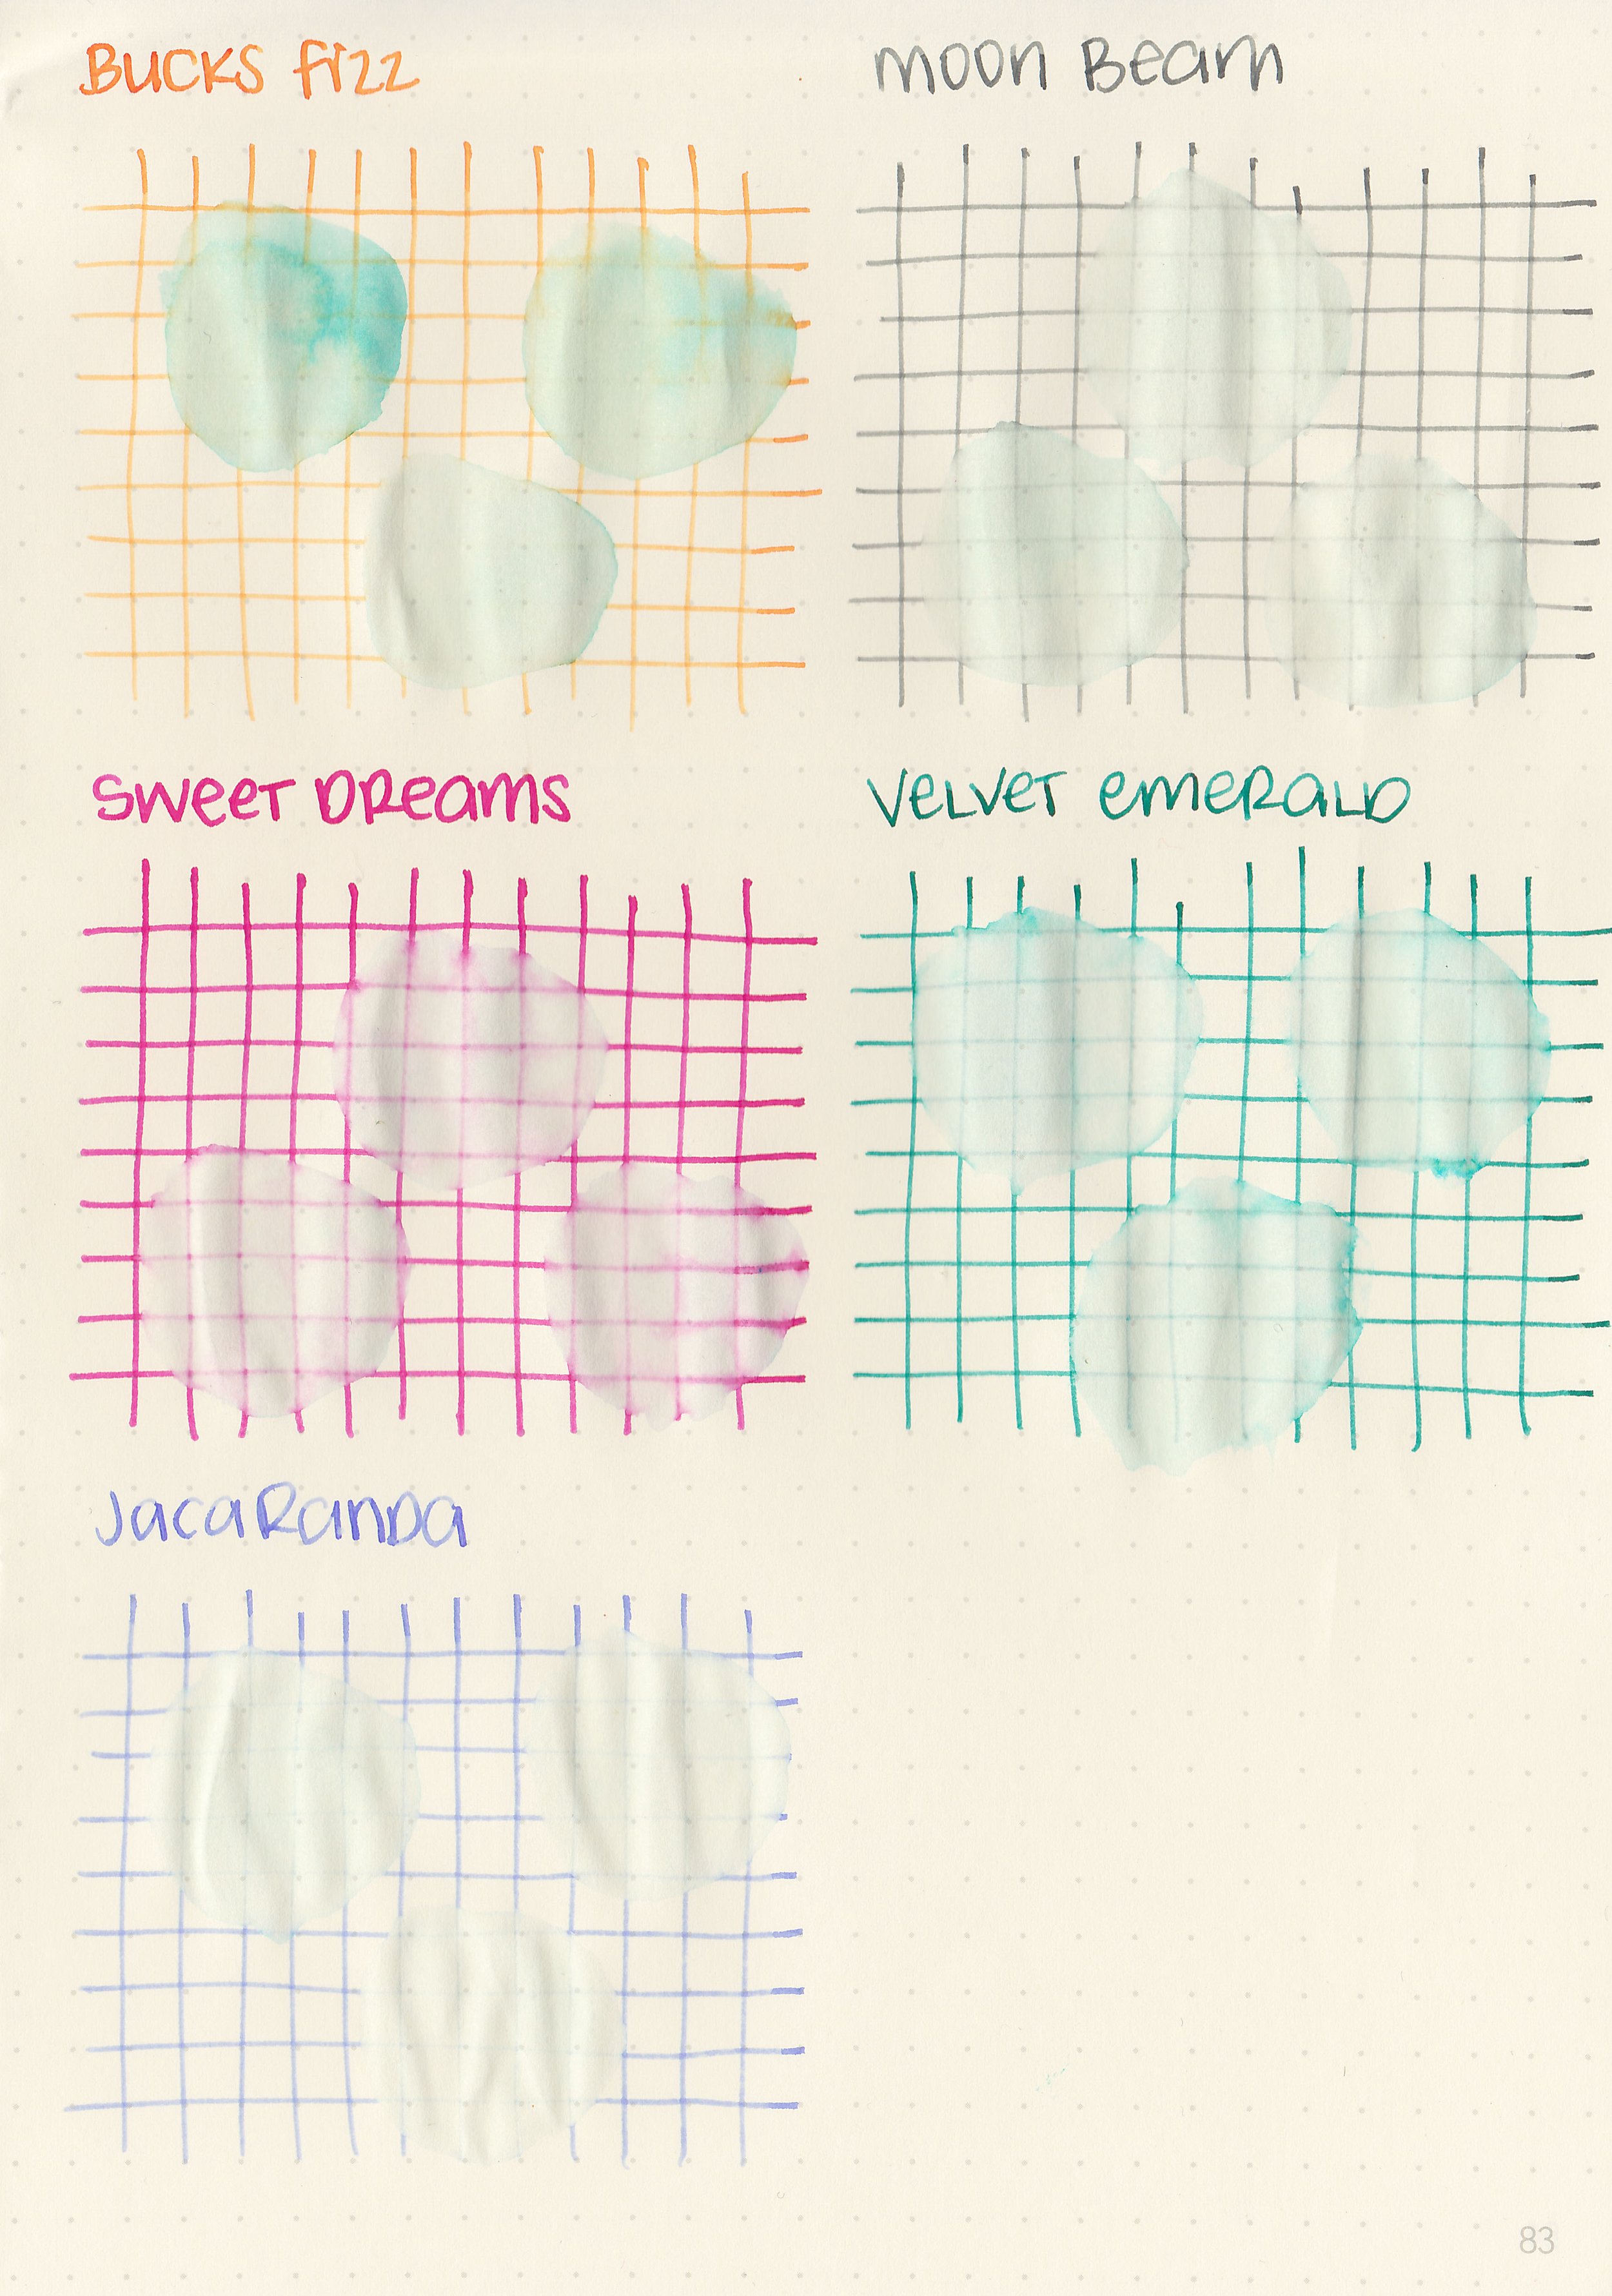 BUCKS fizz
moon Beam
SWeeT DReams
VeLVeT emeRaLD
JacaRanDa
83